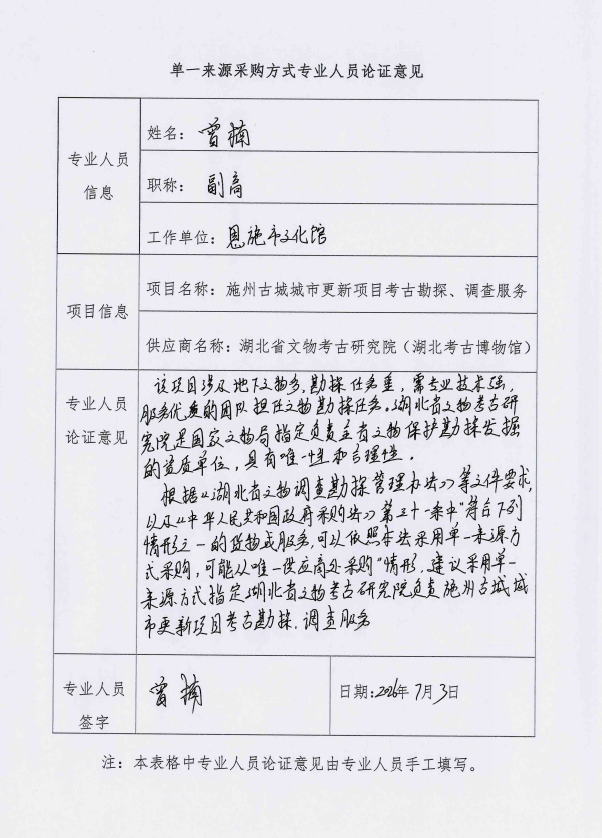 单一来源采购方式专业人员论证意见
专业人员
信息
姓名：曾楠
职称：副高
工作单位：恩施市文化馆
项目信息
项目名称：施州古城城市更新项目考古勘探、调查服务
供应商名称：湖北省文物考古研究院（湖北考古博物馆）
专业人员
论证意见
该项目涉及地下文物多，勘探任务重，需专业技术强，
服务优质的团队担任文物勘探任务。湖北省文物考古研
究院是国家文物局指定负责全省文物保护勘探发掘
的资质单位，具有唯一性和合理性。
根据《湖北省文物调查勘探管理办法》等文件要求，
以及《中华人民共和国政府采购法》第三十一条中“符合下列
情形之一的货物或服务，可以依照本法采用单一来源方
式采购，可能从唯一供应商处采购”情形，建议采用单一
来源方式指定湖北省文物考古研究院负责施州古城城
市更新项目考古勘探，调查服务
专业人员
签字
曾楠
日期：2026年7月3日
注：本表格中专业人员论证意见由专业人员手工填写。